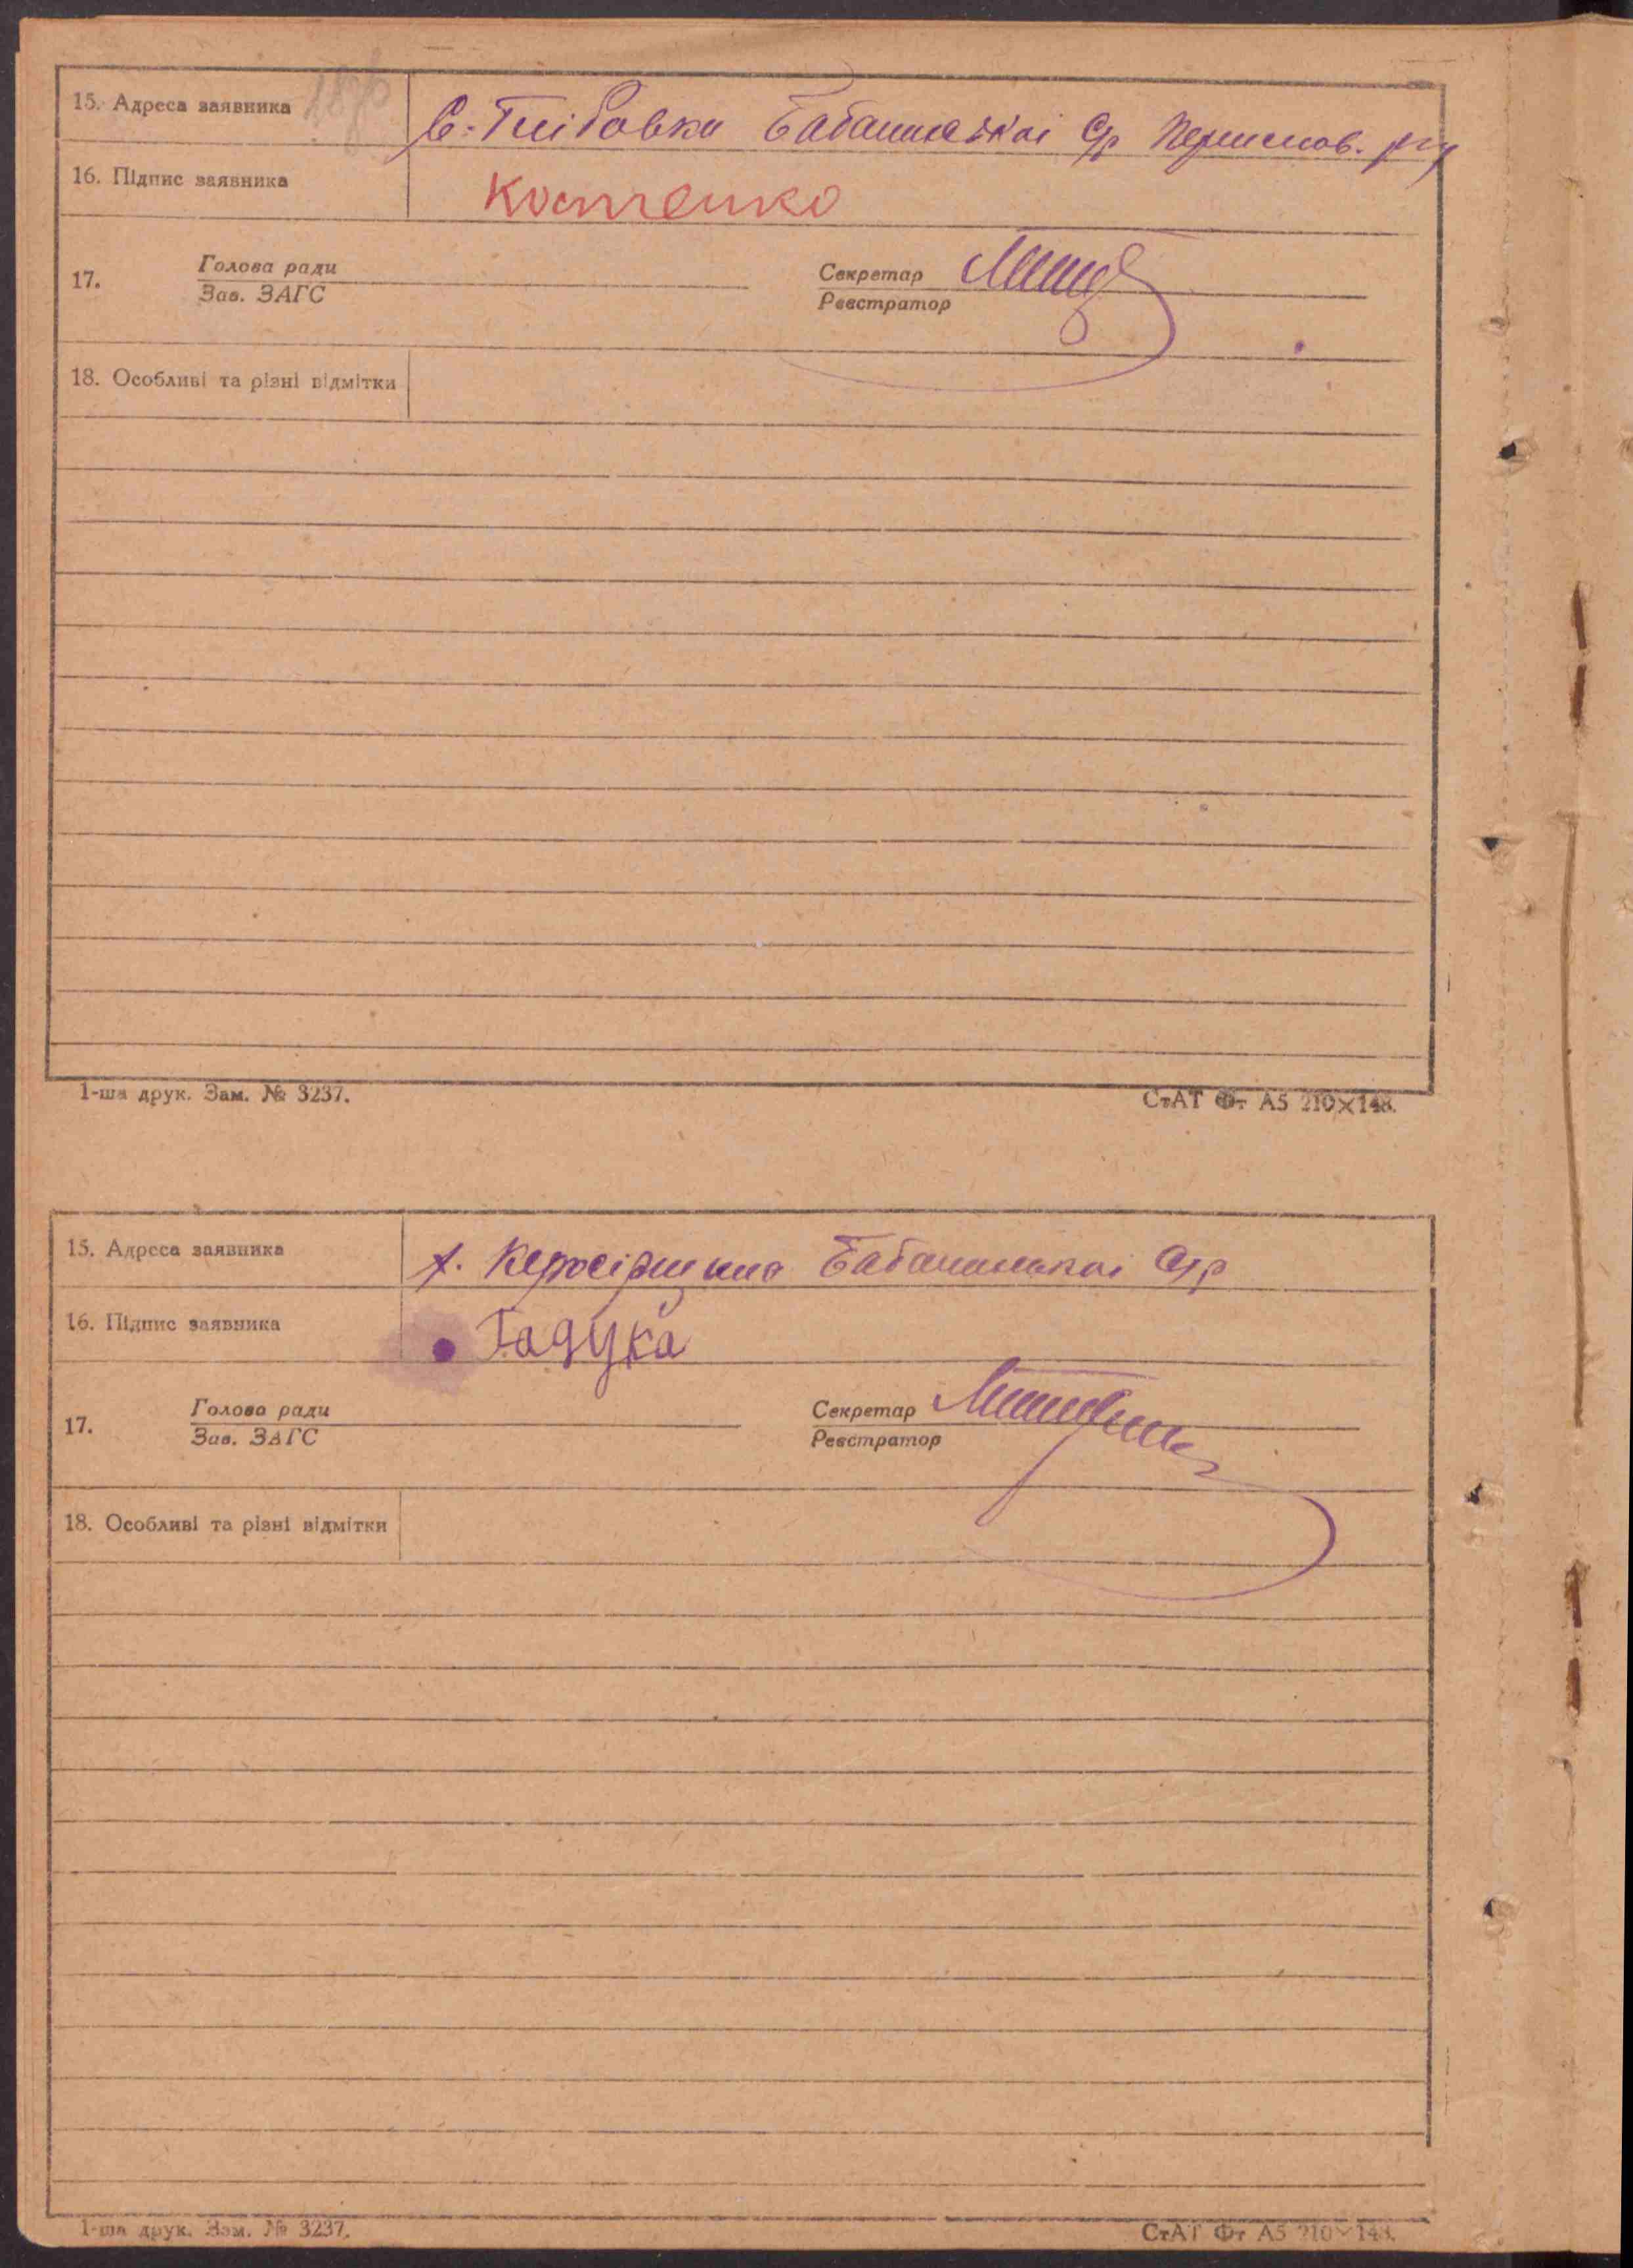 15. Адреса заявника
С. Глібовка Бабанської С/р
16. Підпис заявника Костенко
17. Голова ради Секретар
Зав. ЗАГС Реєстратор
18. Особливі та різні відмітки
1-ша друк. Зам. № 3237. СтАТ Фт А5 210×148.
15. Адреса заявника х. Бабанської С/р
16. Підпис заявника Гадука
17. Голова ради Секретар
Зав. ЗАГС Реєстратор
18. Особливі та різні відмітки
1-ша друк. Зам. № 3237. СтАТ Фт А5 210×148.